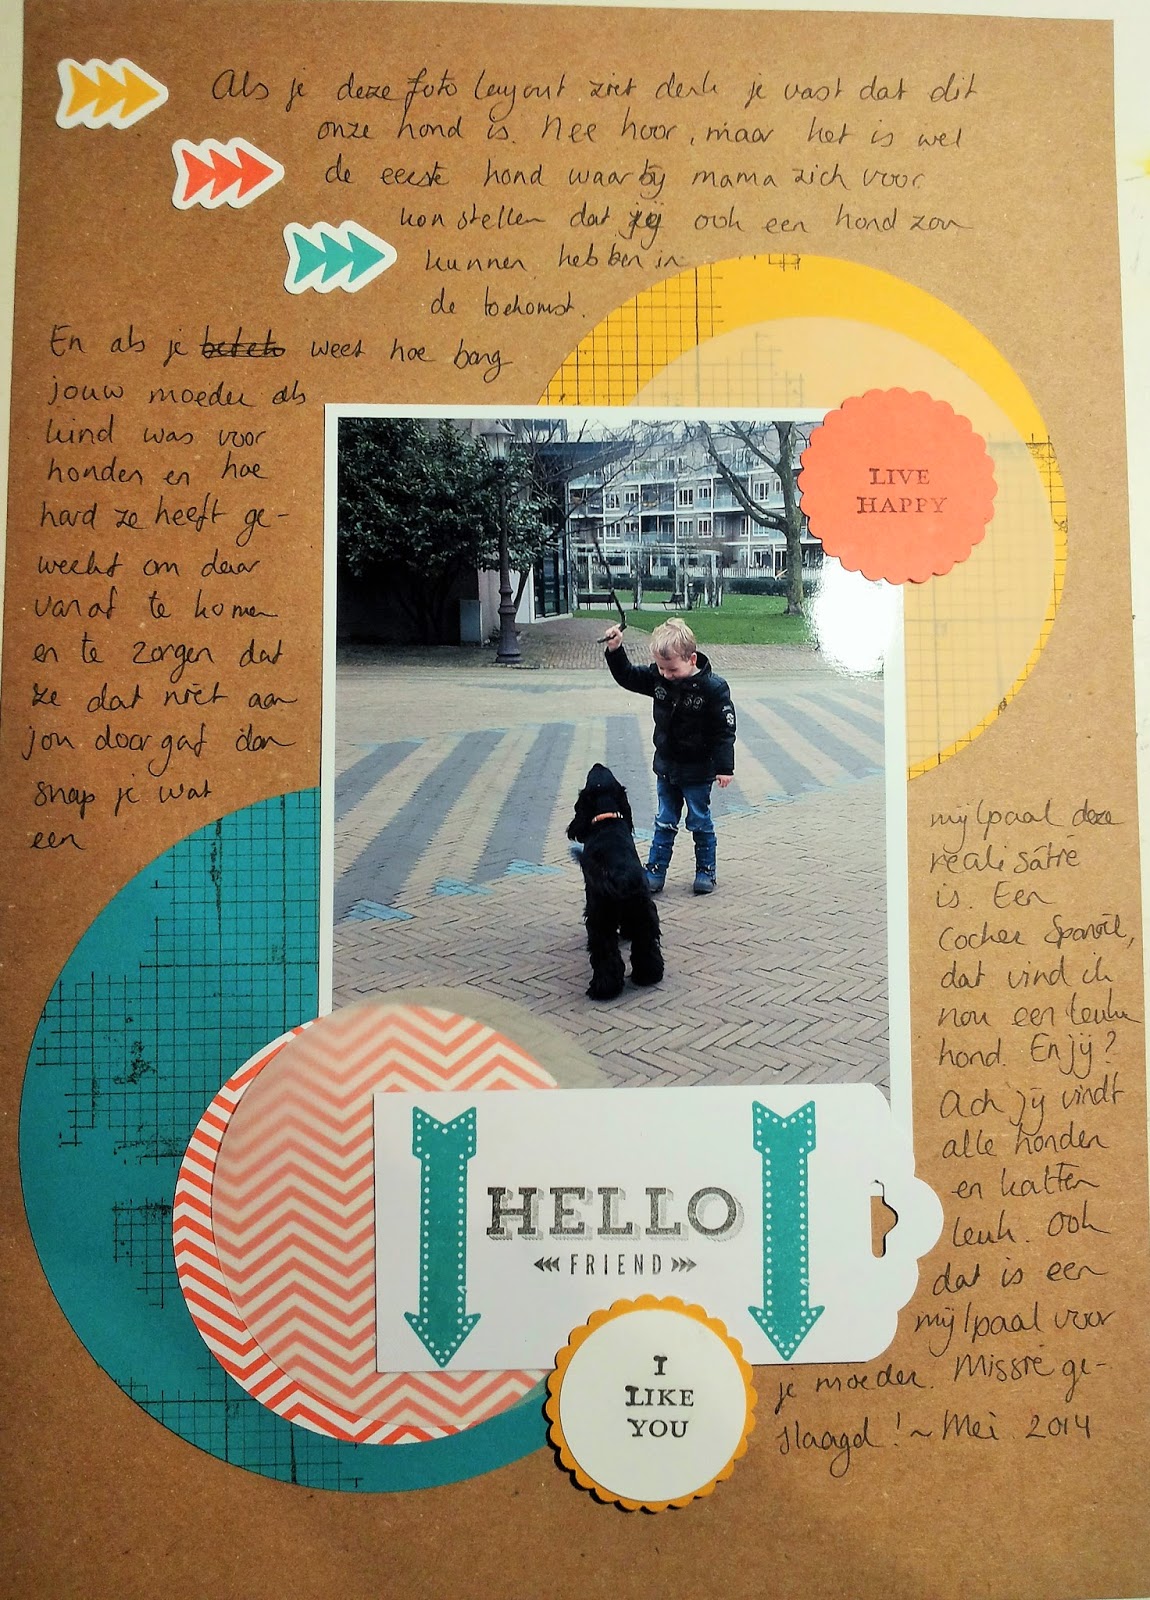 Als je deze foto layout ziet denk je vast dat dit
onze hond is. Nee hoor, maar het is wel
de eerste hond waarbij mama zich voor
kon stellen dat jij ook een hond zou
kunnen hebben in
de toekomst.
En als je weet hoe bang
jouw moeder als
kind was voor
honden en hoe
hard ze heeft ge-
werkt om daar
vanaf te komen
en te zorgen dat
ze dat niet aan
jou doorgaf dan
snap je wat
een
mijlpaal deze
realisatie
is. Een
Cocker Spaniël,
dat vind ik
nou een leuke
hond. En jij?
Ach jij vindt
alle honden
en katten
leuk. Ook
dat is een
mijlpaal voor
je moeder. Missie ge-
slaagd! ~ Mei 2014
LIVE
HAPPY
HELLO
FRIEND
I
LIKE
YOU